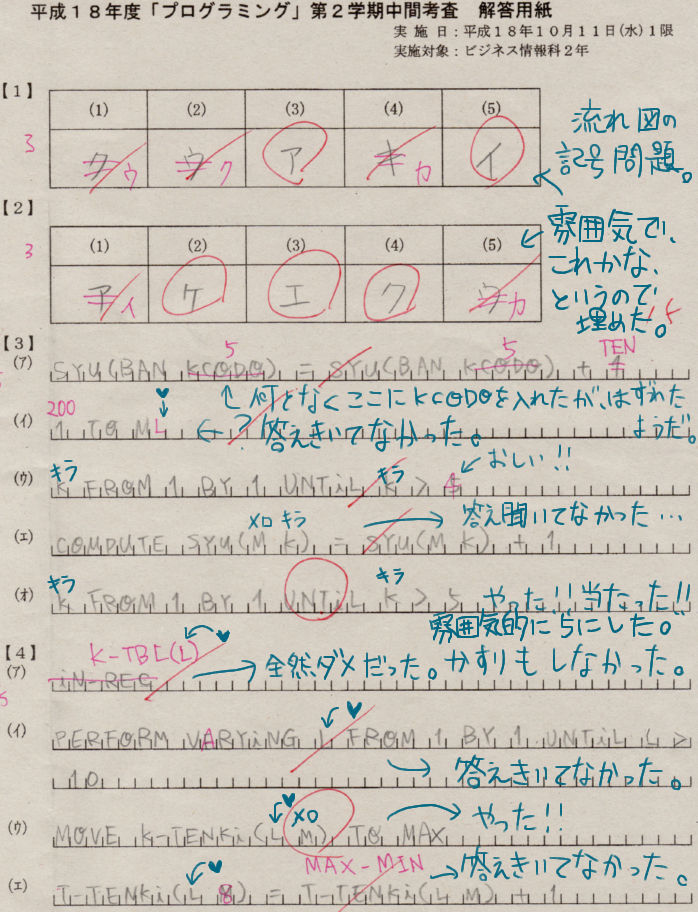 平成18年度「プログラミング」第2学期中間考査 解答用紙
実施日:平成18年10月11日(水)1限
実施対象:ビジネス情報科2年
【1】
(1) (2) (3) (4) (5)
3 ク ウ ウ ク ア キ カ イ
流れ図の
記号問題。
【2】
(1) (2) (3) (4) (5)
3 ア イ ケ エ ク ウ カ
雰囲気で、
これかな、
というので
埋めた。
【3】
5 5 TEN
(ア) SYU(BAN KCODO) = SYU(BAN KCODO) + 1
↑何となくここにKCODOを入れたが、はずれた
ようだ。
200
(イ) 1 TO ML ←? 答えきいてなかった。
キラ キラ おしい!!
(ウ) K FROM 1 BY 1 UNTiL K >
メロ キラ → 答え聞いてなかった…
(エ) COMPUTE SYU(M K) = SYU(M K) + 1
キラ キラ
(オ) K FROM 1 BY 1 UNTiL K > 5 やった!!当たった!!
雰囲気的に5にした。
【4】 K-TBL(L)
(ア) iN-REC → 全然ダメだった。かすりもしなかった。
(イ) PERFORM VARYiNG L FROM 1 BY 1 UNTiL L >
10 → 答えきいてなかった。
メロ → やった!!
(ウ) MOVE K-TENKi(L M) TO MAX
MAX-MIN → 答えきいてなかった。
(エ) T-TENKi(L 8) = T-TENKi(L M) + 1